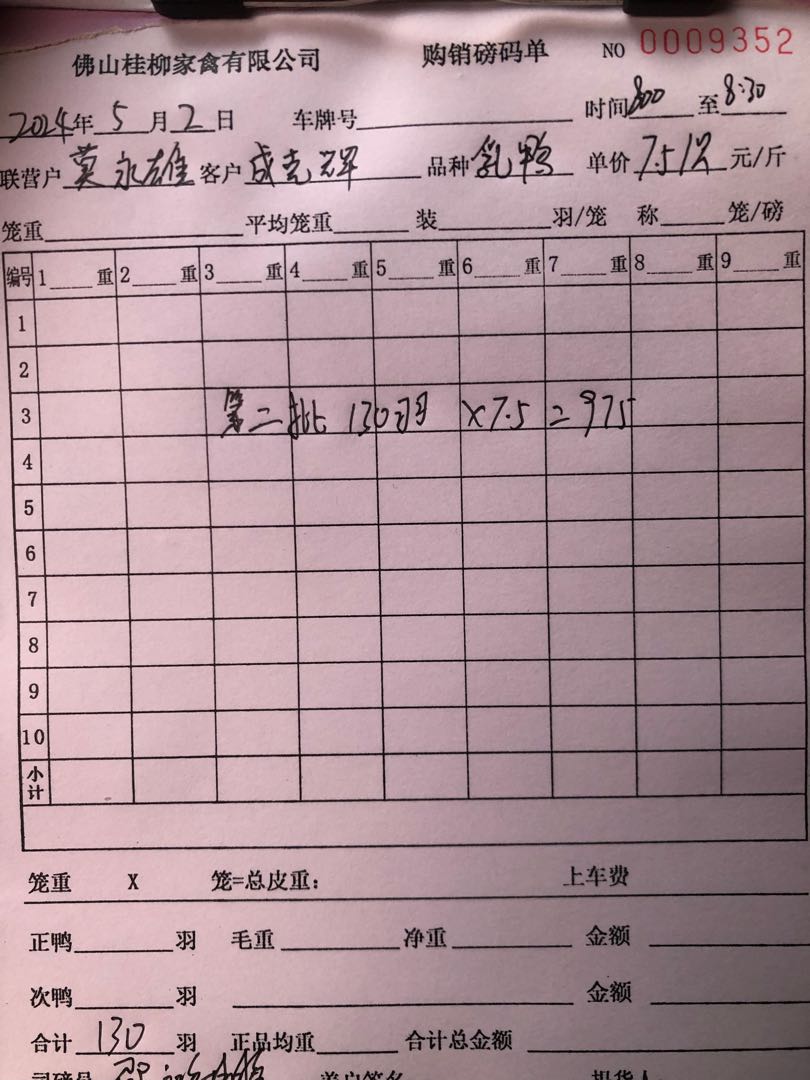 佛山桂柳家禽有限公司 购销磅码单 NO 0009352
2024年5月2日 车牌号 时间800至8:30
联营户莫永雄客户成克辉 品种乳鸭 单价7.5/只元/斤
笼重 平均笼重 装 羽/笼 称 笼/磅
编号 1 重 2 重 3 重 4 重 5 重 6 重 7 重 8 重 9 重
1
2
3 第二批 130羽 ×7.5=975
4
5
6
7
8
9
10
小计
笼重 X 笼=总皮重: 上车费
正鸭 羽 毛重 净重 金额
次鸭 羽 金额
合计130羽 正品均重 合计总金额
司磅员 养户签名 提货人